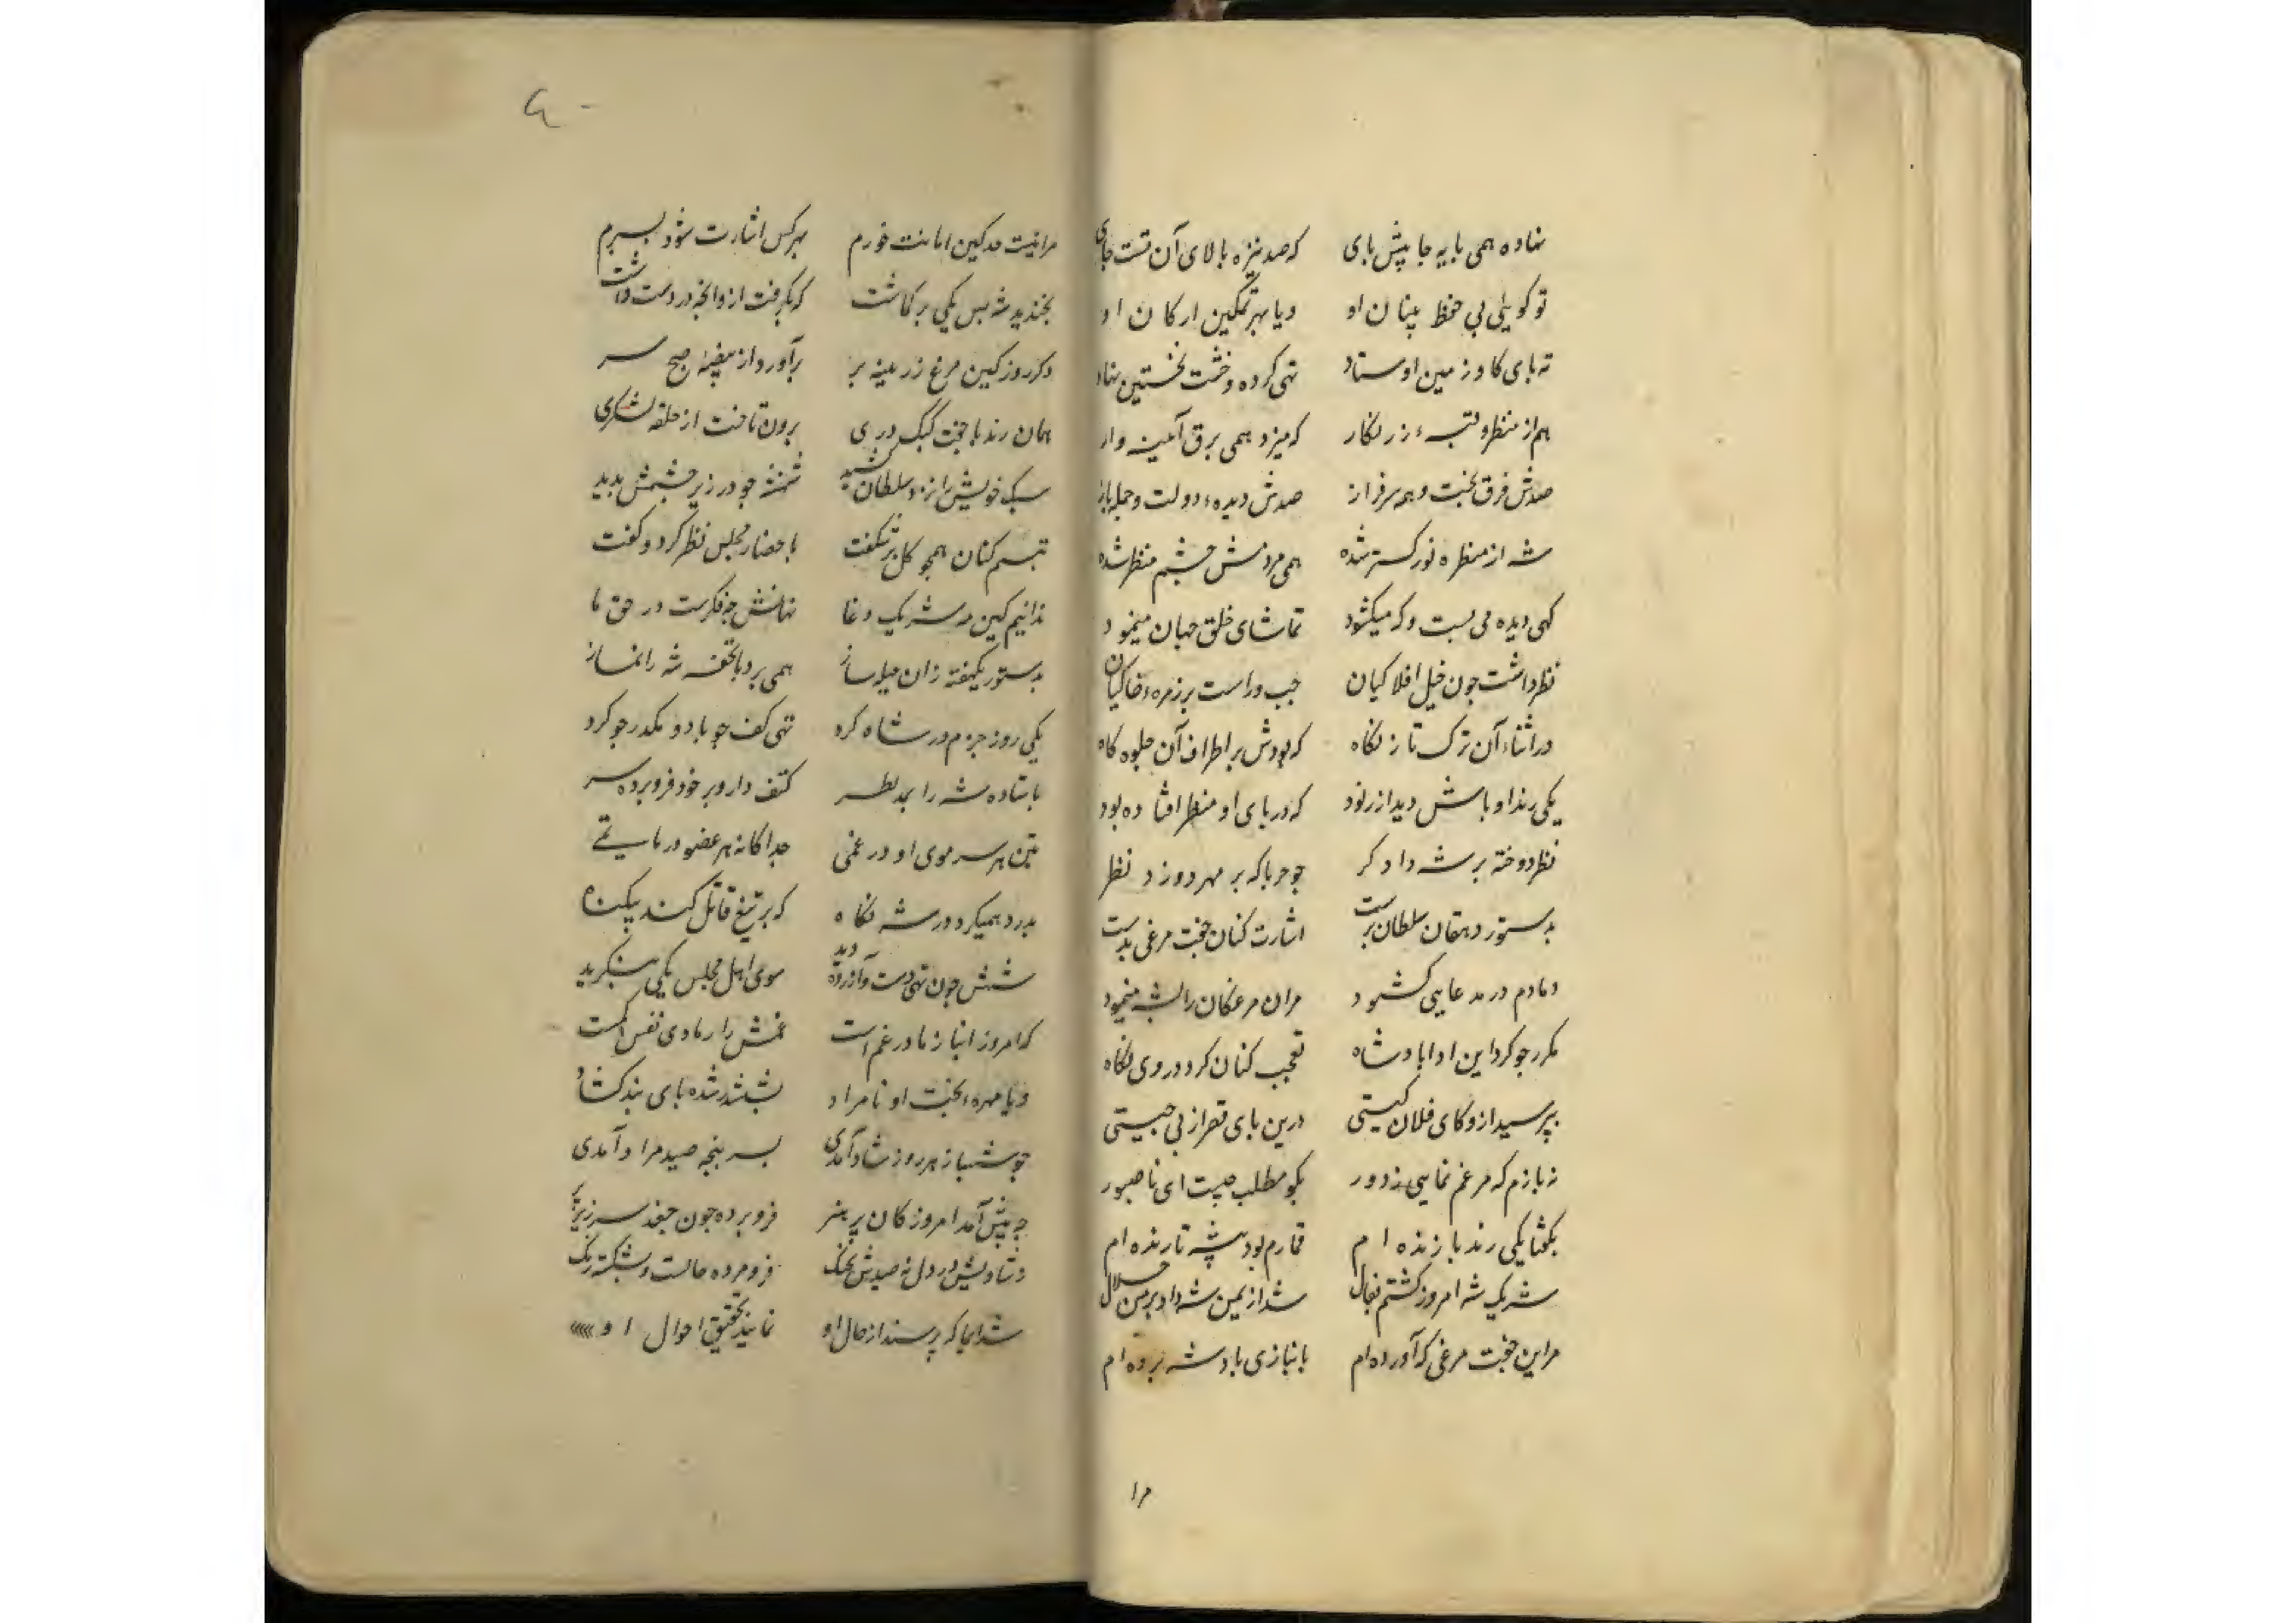 نهاده همی پایه جا پیش پای که صد نیزه بالای آن تست جای
تو کویی پی حفظ بنیان او و یا بهر تمکین ارکان او
ته پای کاو زمین اوستاد تهی کرده و خشت نخستین نهاد
هم از منظر و قبهٔ زرنکار که میزد همی برق آیینه وار
صدش فرق بخت و همه سرفراز صدش دیدهٔ دولت و جمله باز
شه از منظره نور کستر شده همی مردمش چشم منظر شده
کهی دیده می بست و که میکشود تماشای خلق جهان مینمود
نظر داشت جون خیل افلاکیان جب و راست بر زمرهٔ خاکیان
در اثناء آن ترک تاز نکاه که بودش بر اطراف آن جلوه کاه
یکی رند اوباش دید از رنود که در پای او منظر افتاده بود
نظر دوخته بر شه دادکر جو حربا که بر مهر دوزد نظر
بدستور دهقان سلطان پرست اشارت کنان جفت مرغی بدست
دمادم در مدعایی کشود مر آن مرغکان را بشه مینمود
مکرر جو کرد این ادا بادشاه تعجب کنان کرد در وی نکاه
بپرسید ازو کای فلان کیستی درین پای قصر از پی جیستی
نه بازم که مرغم نمایی ز دور بکو مطلب جیست ای ناصبور
بکفتا یکی رند بازنده ام قمارم بود پیشه تا زنده ام
شریک شه امروز کشتم بفال شد از یمن شه داد بر من حلال
مر این جفت مرغی که آورده ام بانبازی بادشه برده ام
مرا
مرا نیست حد کین امانت خورم بهر کس اشارت شود بسپرم
بخندید شه بس یکی بر کماشت که بکرفت ازو انجه در دست داشت
دکر روز کین مرغ زرینه پر برآورد از بیضهٔ صبح سر
همان رند با جفت کبک دری برون تاخت از حلقه لشکری
سبک خویش را نزد سلطان کشید شهنشه جو در زیر جشمش بدید
تبسم کنان همجو کل برشکفت با حضار مجلس نظر کرد و کفت
ندانیم کین مه شریک دغا نهانش جه فکرست در حق ما
بدستور یکهفته زان حیله ساز همی برد با تحفه شه را نماز
یکی روز جزم در شاه کرد تهی کف جو باد و مکدر جو کرد
باستاده شه را بمد نظر کتف دار و بر خود فرو برده سر
بتن هر سر موی او در غمی جداکانه هر عضو در ماتمی
بدرد همیکرد در شه نکاه که بر تیغ قاتل کند بیکناه
شهش جون تهی دست و آزرده دید سوی اهل مجلس یکی بنکرید
که امروز انباز ما در غم است غمش را رمادی نفس است
و یا مهرهٔ بخت او نامراد بششدر شده بای بند کشاد
جو شهباز هر روز شاد آمدی بسر پنجه صید مراد آمدی
جه پیش آمد امروز کان پر هنر فرو برده جون جغد سر زیر پر
فرو مرده حالست و بشکسته رنک
شد ایما که پرسند از حال او نمایند تحقیق احوال او